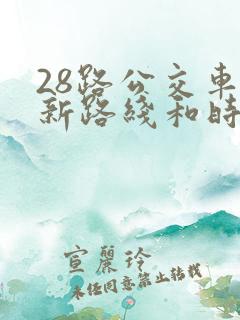 28路公交车
新路线和时
宣丽玲
未经同意禁止转载